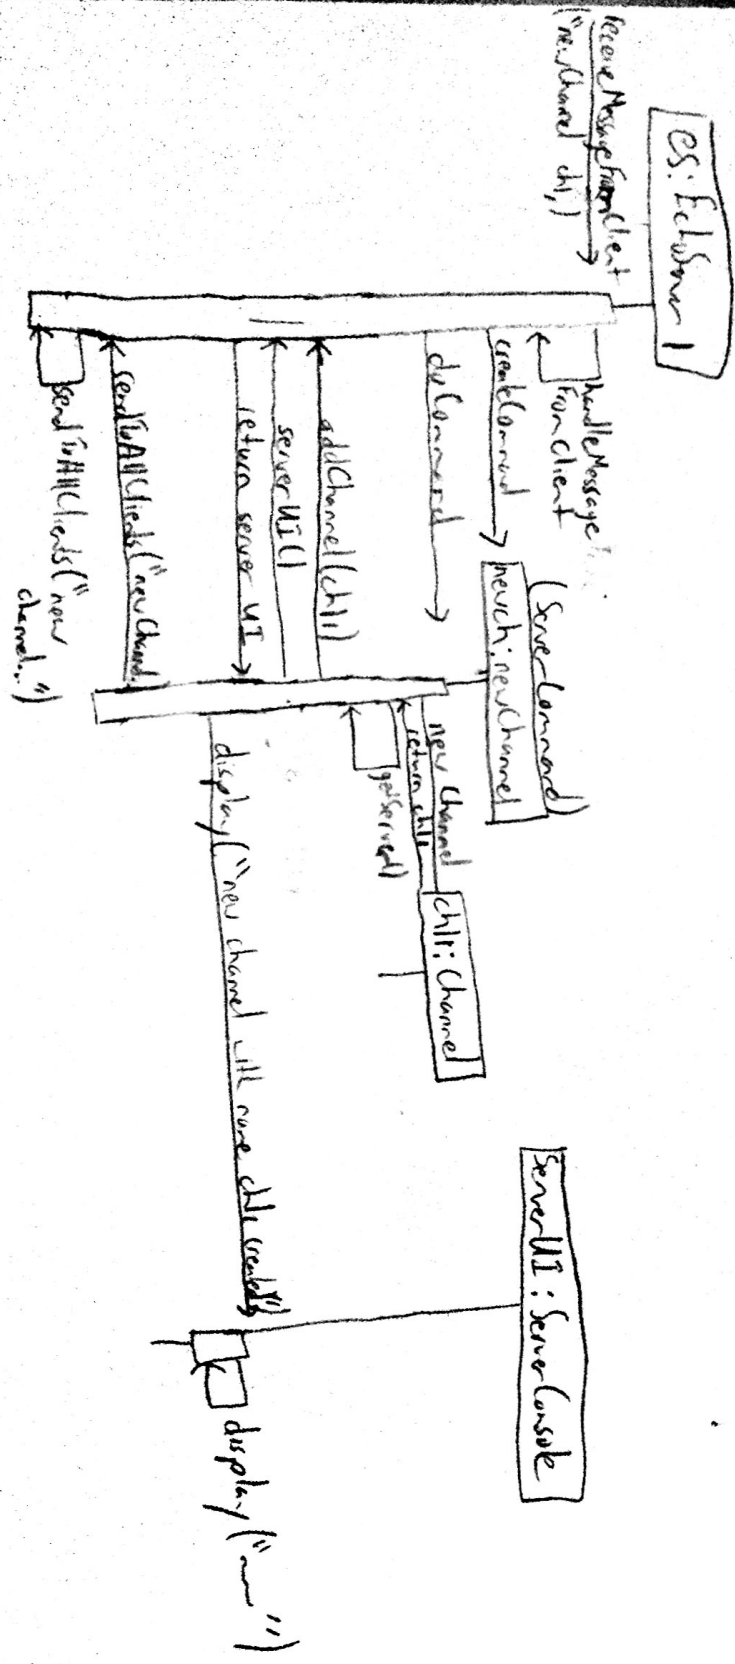 receiveMessageFromClient
("newChannel ch1,)
cs: EchoServer1
handleMessage
FromClient
createCommand
doCommand
(ServerCommand)
newch: newChannel
new Channel
return ch1,
ch1: Channel
getServer()
addChannel(ch1)
serverUI()
return server UI
display("new channel with name ch1, created")
ServerUI: ServerConsole
display(" ")
sendToAllClients("newChannel.
sendToAllClients("new
channel..")